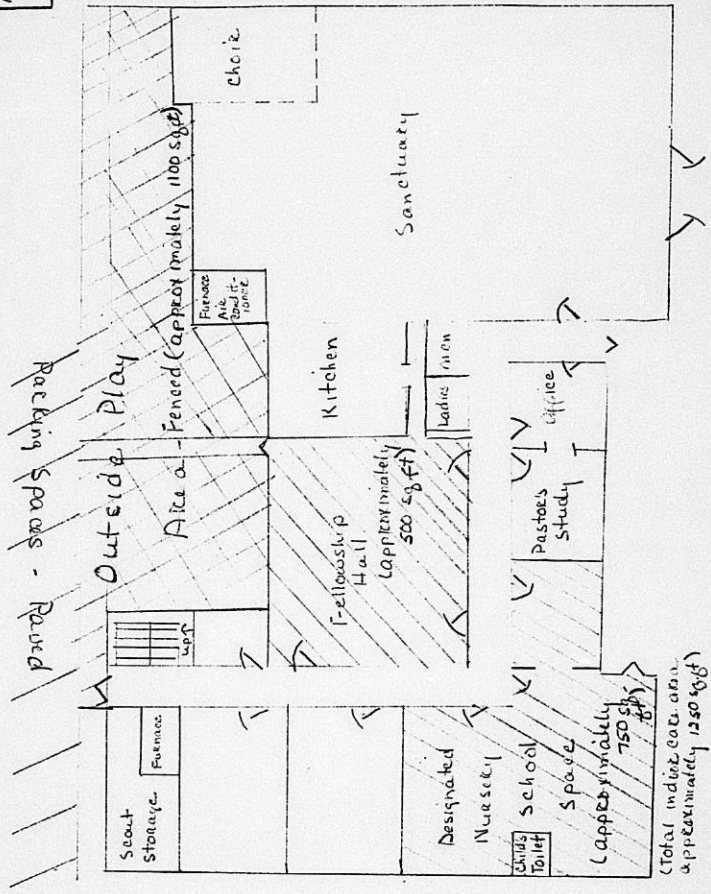 Parking Spaces - Paved
Outside Play
Area - Fenced (approximately 1100 sq ft)
Choir
Sanctuary
Furnace
Air
Condit-
ioner
Kitchen
Ladies
men
Fellowship
Hall
(approximately
500 sq ft)
UP↑
Scout
Storage
Furnace
Office
Pastor's
Study
Designated
Nursery
School
Space
(approximately
750 sq
ft)
Child's
Toilet
(Total indoor care area
approximately 1250 sq ft)